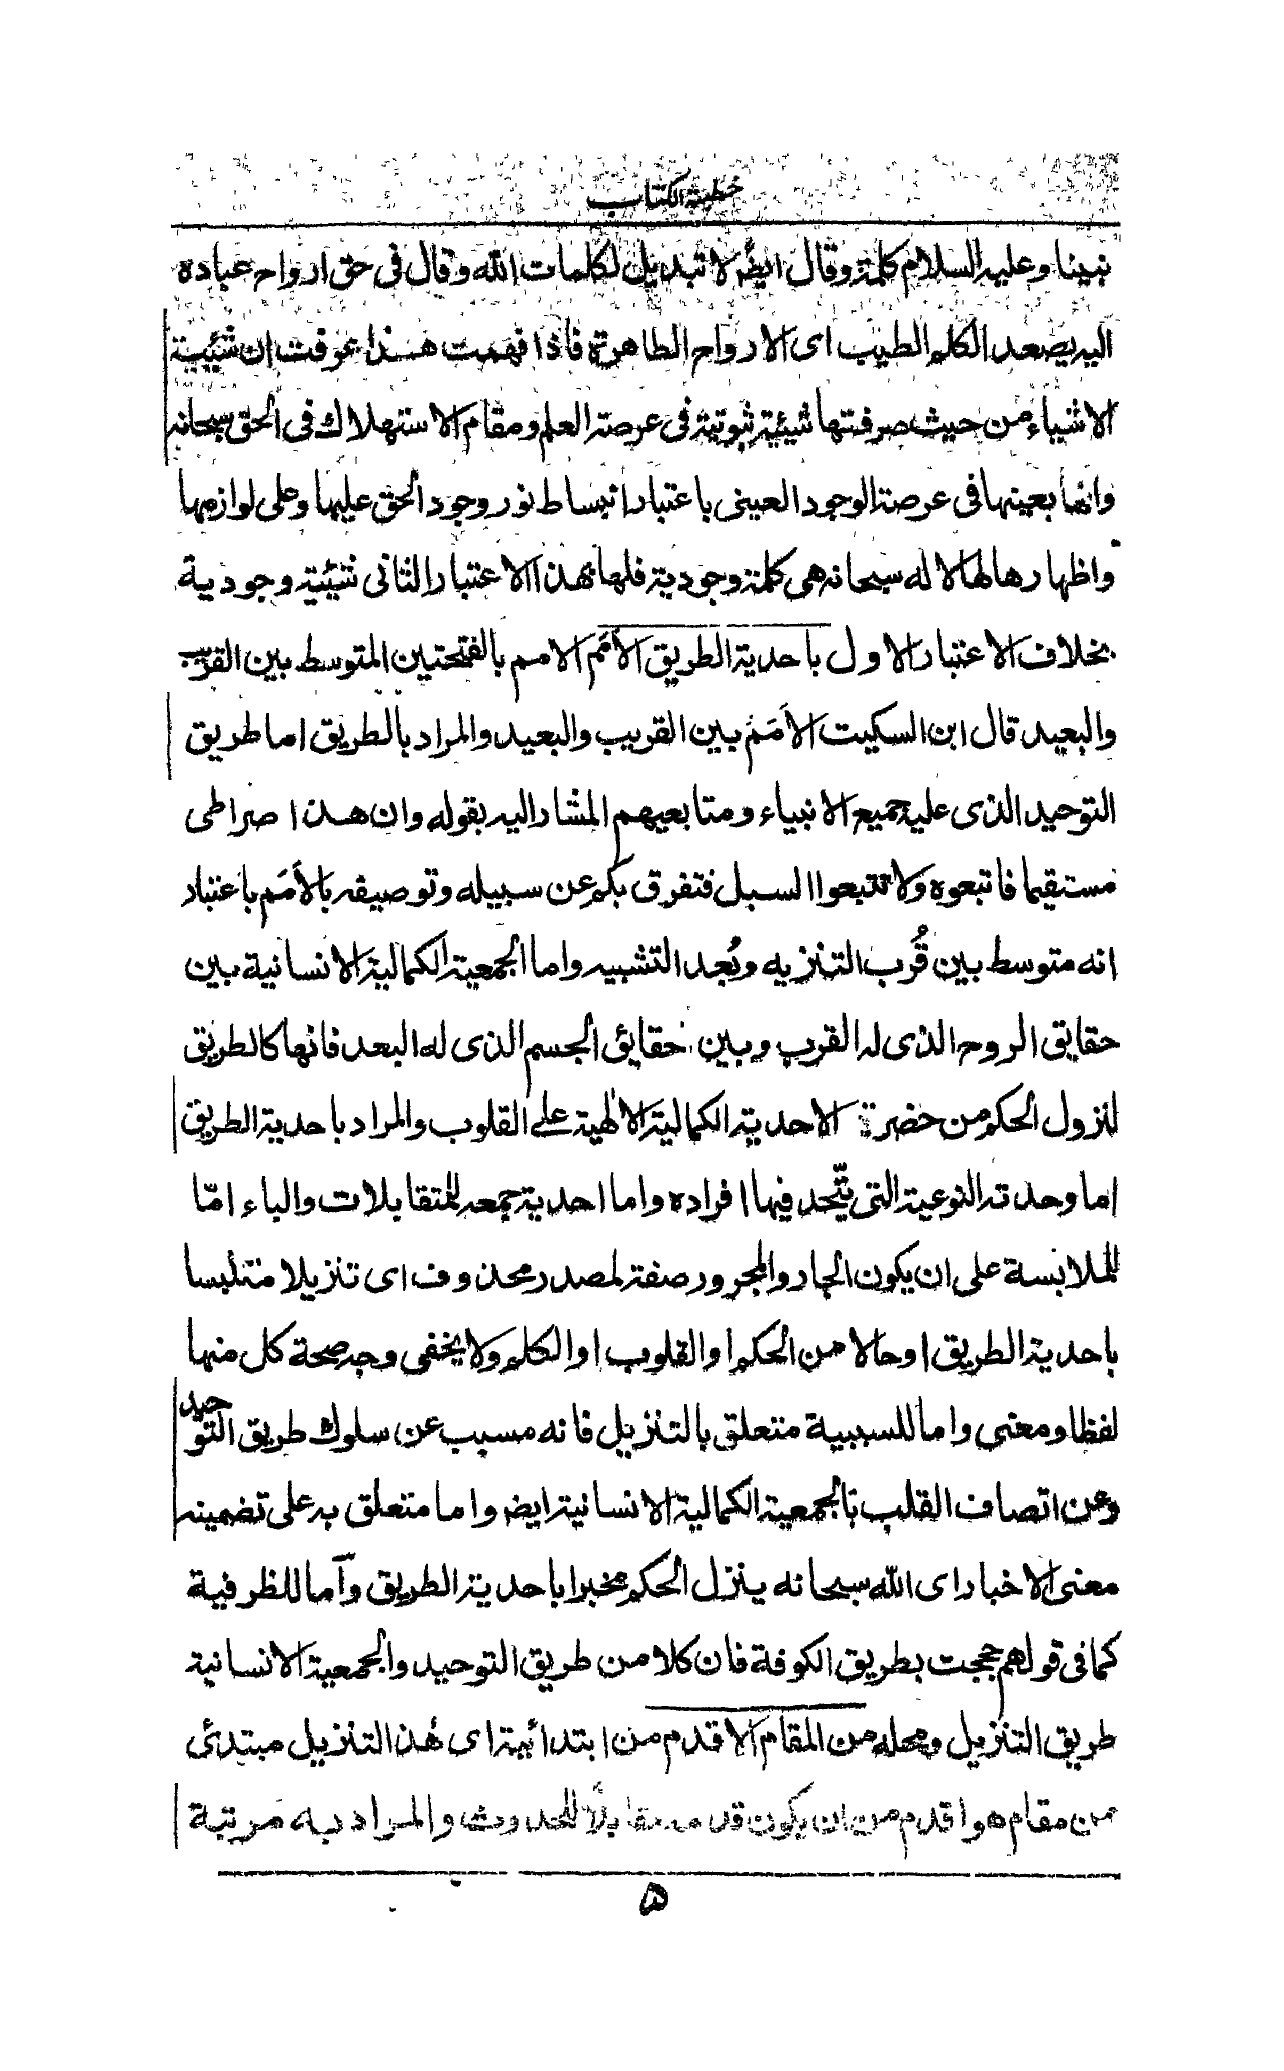 خطبة الكتاب
نبينا وعليه السلام كلمة وقال ايضا لا تبديل لكلمات الله وقال فى حق ارواح عباده
اليه يصعد الكلم الطيب اى الارواح الطاهرة فاذا فهمت هذا عرفت ان شيئية
الاشياء من حيث صرفتها شيئية ثبوتية فى عرصة العلم ومقام الاستهلاك فى الحق سبحانه
وانها بعينها فى عرصة الوجود العينى باعتبار انبساط نور وجود الحق عليها وعلى لوازمها
واظهارها لها لا له سبحانه هى كلمة وجودية فلها بهذا الاعتبار الثانى شيئية وجودية
بخلاف الاعتبار الاول باحدية الطريق الأَمَم الامم بالفتحتين المتوسط بين القريب
والبعيد قال ابن السكيت الأمَم بين القريب والبعيد والمراد بالطريق اما طريق
التوحيد الذى عليه جميع الانبياء ومتابعيهم المشار اليه بقوله وان هذا صراطى
مستقيما فاتبعوه ولا تتبعوا السبل فتفرق بكم عن سبيله وتوصيفه بالأمَم باعتبار
انه متوسط بين قُرب التنزيه وبُعد التشبيه واما الجمعية الكمالية الانسانية بين
حقايق الروح الذى له القرب وبين حقايق الجسم الذى له البعد فانها كالطريق
لنزول الحكم من حضرة الاحدية الكمالية الالهية على القلوب والمراد باحدية الطريق
اما وحدته النوعية التى يتّحد فيها افراده واما احدية جمعه للمتقابلات والباء امّا
للملابسة على ان يكون الجار والمجرور صفة لمصدر محذوف اى تنزيلا متلبسا
باحدية الطريق او حالا من الحكم او القلوب او الكلم ولا يخفى وجه صحة كل منها
لفظا ومعنى واما للسببية متعلق بالتنزيل فانه مسبب عن سلوك طريق التوحيد
وعن اتصاف القلب بالجمعية الكمالية الانسانية ايض واما متعلق به على تضمينه
معنى الاخبار اى الله سبحانه ينزل الحكم مخبرا باحدية الطريق وآما للظرفية
كما فى قولهم حججت بطريق الكوفة فان كلا من طريق التوحيد والجمعية الانسانية
طريق التنزيل ومحله من المقام الاقدم من ابتدائية اى هذا التنزيل مبتدئ
من مقام هو اقدم من ان يكون قدمه مقابلًا للحدوث والمراد به مرتبة
۵